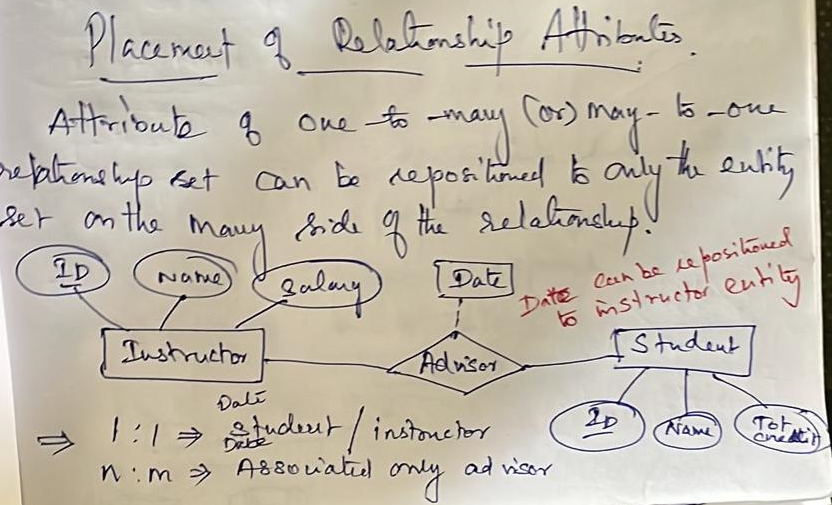 Placement of Relationship Attributes.
Attribute of one-to-many (or) may-to-one
relationship set can be repositioned to only the entity
set on the many side of the relationship.
ID Name Salary Date
Date can be repositioned
to instructor entity
Instructor Advisor Student
ID Name Tot credit
Date
⇒ 1:1 ⇒ Student / instructor
Date
n:m ⇒ Associated only advisor